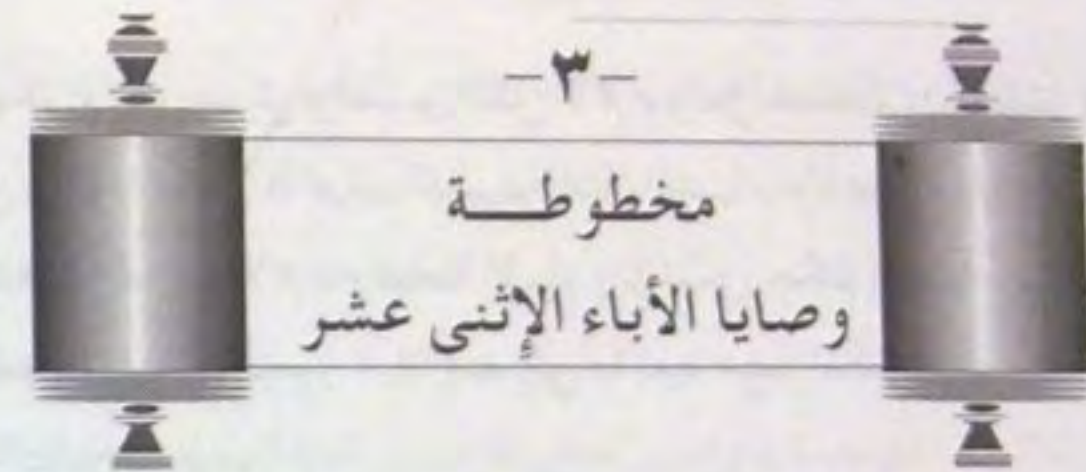 -٣-
مخطوطــة
وصايا الأباء الإثنى عشر